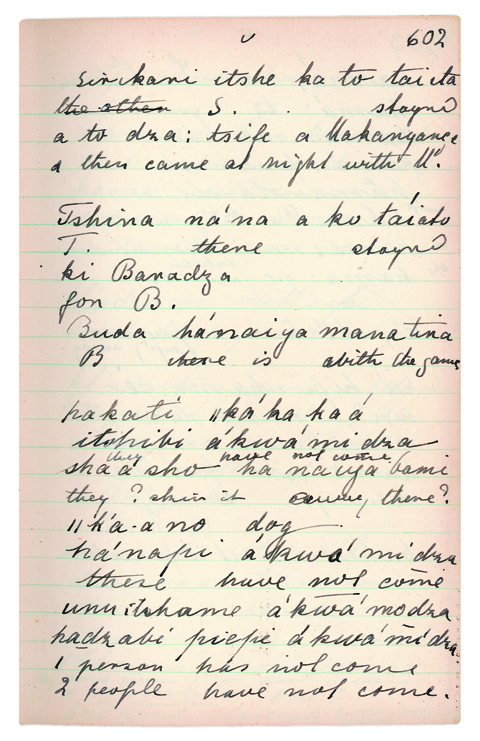 602
Sirikani itshe ka to taita
the other S. stayed
a to dza: tsife a Makanyane
a then came at night with M.
Tshina ná'na a ko táiato
T. there stayed
ki Banadza
for B.
Buda hánaiya manatina
B there is with the game
pakati "ká'ka ka á
itshibi ákwá'mi dza
they have not come
sha á sho ha naiya bami
they ? skin it away, there?
"ká-a no dog
há'napi ákwá' mi dza
these have not come
unuitshame ákwá'modza
hadzabi piepe ákwá'mi dza
1 person has not come
2 people have not come.